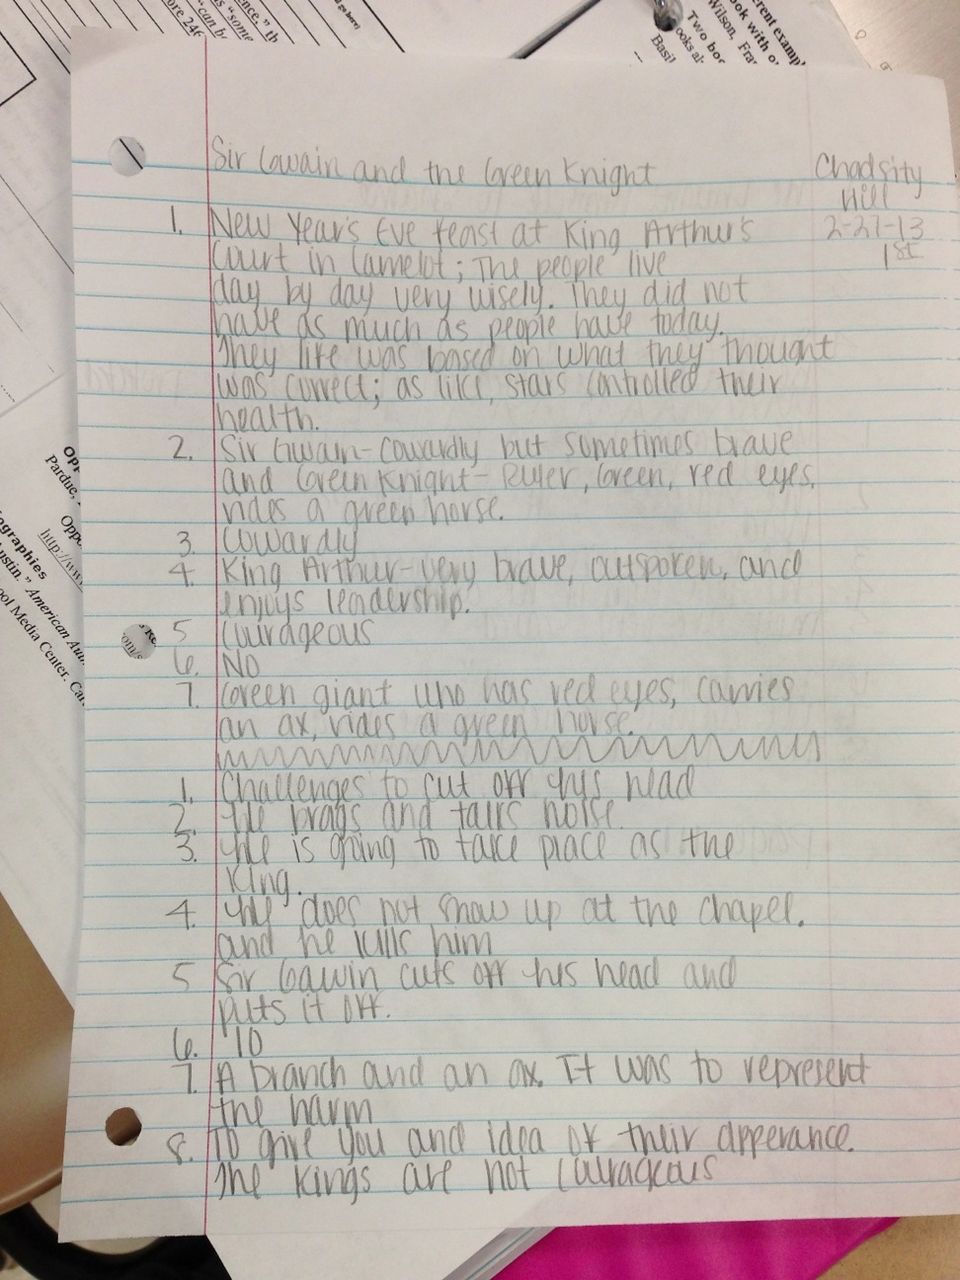 Sir Gwain and the Green Knight
Chadsity
Hill
2-27-13
1st
1. New Year's Eve feast at King Arthur's
Court in Camelot; The people live
day by day very wisely. They did not
have as much as people have today.
They life was based on what they thought
was correct; as like, stars controlled their
health.
2. Sir Gwain-cowardly but sometimes brave
and Green Knight- Ruler, Green, red eyes,
rides a green horse.
3. Cowardly
4. King Arthur-very brave, outspoken, and
enjoys leadership.
5 Courageous
6. NO
7. Green giant who has red eyes, carries
an ax, rides a green horse.
1. Challenges to cut off his head
2. He brags and talks noise.
3. He is going to take place as the
King.
4. He does not show up at the chapel.
and he kills him
5 Sir Gawin cuts off his head and
puts it off.
6. 10
7. A branch and an ax. It was to represent
the harm
8. To give you and idea of their apperance.
The Kings are not courageous
ographies
Austin." American
ool Media Center.
Pardue,
http://ww
erent exampl
ook with o
Wilson, Fra
Two boo
ooks al
Basil
"can b
"some
ore 246